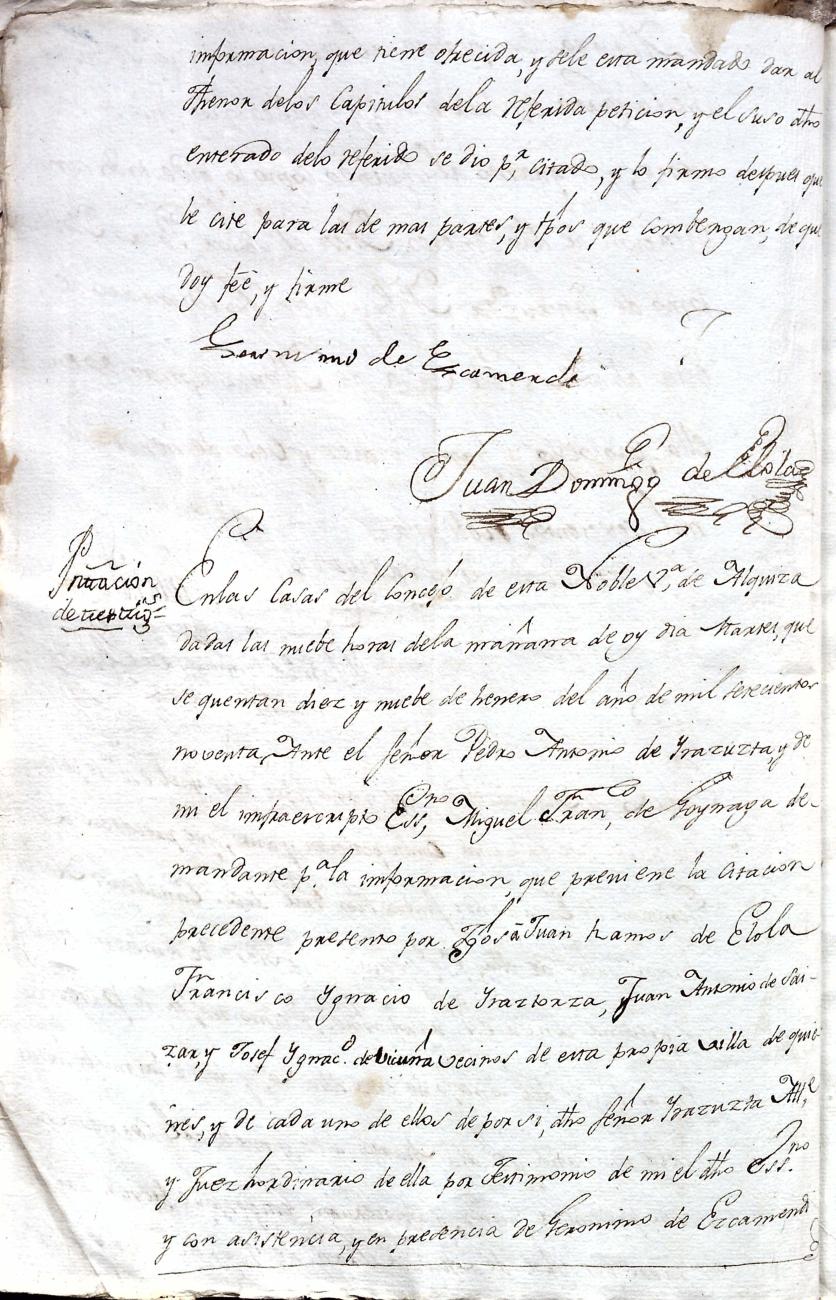 informacion, que tiene ofrecida, y sele esta mandado dar al
Thenor delos Capitulos dela referida peticion, y el suso dho
enterado delo referido se dio p.r citado, y lo firmo despues que
le cite para las de mas partes, y tpos que combengan, de que
doy feé, y firme
Geronimo de Ezcamendi
Juan Domingo de Elola
Pntacion
de testigos
Enlas Casas del Concejo de esta Noble V.a de Alquiza
dadas las nuebe horas dela mañana de oy dia Martes, que
se quentan diez y nuebe de henero del año de mil setecientos
noventa, Ante el señor Pedro Antonio de Yrazuzta, y de
mi el infraescripto Ess.no, Miguel Fran.co de Goynaga de-
mandante p.a la informacion, que previene la citacion
precedente presento por tgos â Juan Ramos de Elola
Francisco Ygnacio de Yraztorza, Juan Antonio de Sai-
zar, y Josef Ygnac.o de Vicuña vecinos de esta propia villa de quie-
nes, y de cada uno de ellos de por si, dho señor Yrazuzta All.e
y Juez hordinario de ella por Testimonio de mi el dho Ess.no
y con asistencia, y en presencia de Geronimo de Ezcamendi